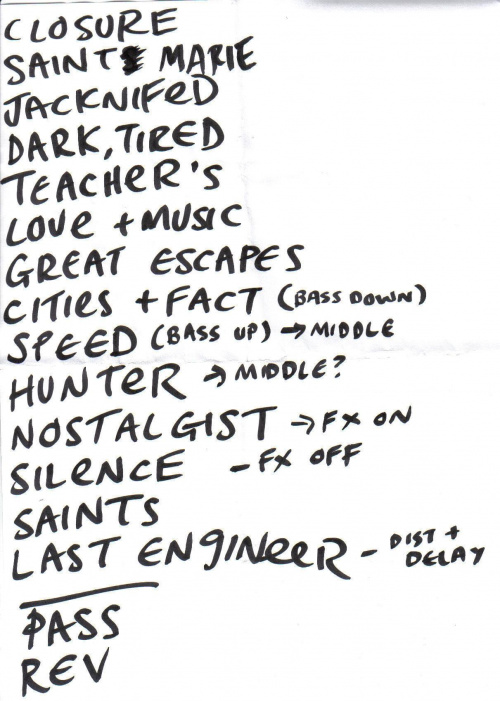 CLOSURE
SAINT MARIE
JACKNIFED
DARK, TIRED
TEACHER'S
LOVE + MUSIC
GREAT ESCAPES
CITIES + FACT (BASS DOWN)
SPEED (BASS UP) → MIDDLE
HUNTER → MIDDLE?
NOSTALGIST → FX ON
SILENCE - FX OFF
SAINTS
LAST ENGINEER - DIST + DELAY
PASS
REV